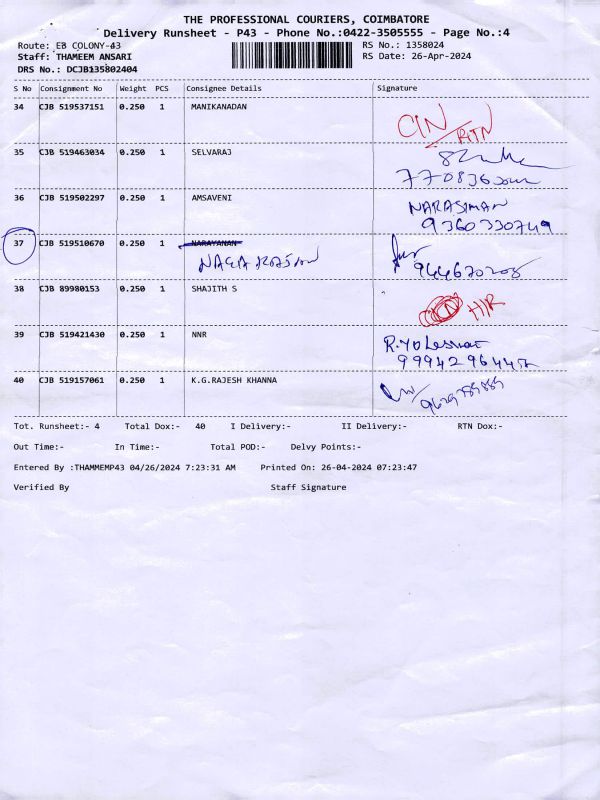 THE PROFESSIONAL COURIERS, COIMBATORE
Delivery Runsheet - P43 - Phone No.:0422-3505555 - Page No.:4
Route: EB COLONY-43
RS No.: 1358024
Staff: THAMEEM ANSARI
RS Date: 26-Apr-2024
DRS No.: DCJB135802404
S No Consignment No Weight PCS Consignee Details Signature
34 CJB 519537151 0.250 1 MANIKANADAN
RTN
35 CJB 519463034 0.250 1 SELVARAJ
36 CJB 519502297 0.250 1 AMSAVENI NARASIMAN
9360330749
37 CJB 519510670 0.250 1 NARAYANAN
NAGARAJAN
38 CJB 89980153 0.250 1 SHAJITH S
39 CJB 519421430 0.250 1 NNR
40 CJB 519157061 0.250 1 K.G.RAJESH KHANNA
Tot. Runsheet:- 4 Total Dox:- 40 I Delivery:- II Delivery:- RTN Dox:-
Out Time:- In Time:- Total POD:- Delvy Points:-
Entered By :THAMMEMP43 04/26/2024 7:23:31 AM Printed On: 26-04-2024 07:23:47
Verified By Staff Signature